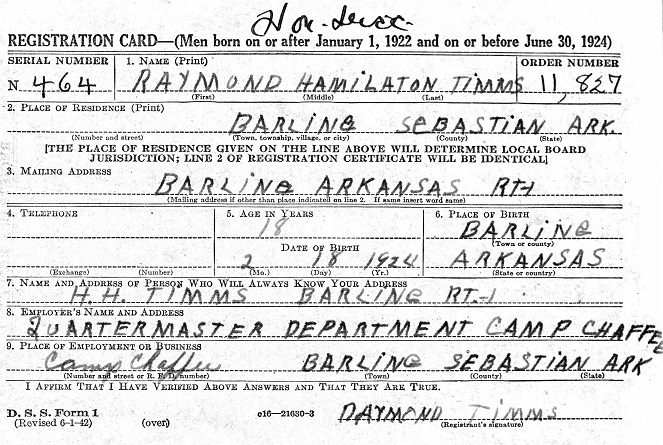 REGISTRATION CARD—(Men born on or after January 1, 1922 and on or before June 30, 1924)
SERIAL NUMBER 1. NAME (Print) ORDER NUMBER
N 464 RAYMOND HAMILATON TIMMS 11,827
(First) (Middle) (Last)
2. PLACE OF RESIDENCE (Print)
BARLING SEBASTIAN ARK.
(Number and street) (Town, township, village, or city) (County) (State)
[THE PLACE OF RESIDENCE GIVEN ON THE LINE ABOVE WILL DETERMINE LOCAL BOARD
JURISDICTION; LINE 2 OF REGISTRATION CERTIFICATE WILL BE IDENTICAL]
3. MAILING ADDRESS
BARLING ARKANSAS RT-1
(Mailing address if other than place indicated on line 2. If same insert word same)
4. TELEPHONE 5. AGE IN YEARS 6. PLACE OF BIRTH
18 BARLING
(Town or county)
DATE OF BIRTH
2 18 1924 ARKANSAS
(Exchange) (Number) (Mo.) (Day) (Yr.) (State or country)
7. NAME AND ADDRESS OF PERSON WHO WILL ALWAYS KNOW YOUR ADDRESS
H.H. TIMMS BARLING RT-1
8. EMPLOYER'S NAME AND ADDRESS
QUARTERMASTER DEPARTMENT CAMP CHAFFEE
9. PLACE OF EMPLOYMENT OR BUSINESS
Camp Chaffee BARLING SEBASTIAN ARK
(Number and street or R. F. D. number) (Town) (County) (State)
I AFFIRM THAT I HAVE VERIFIED ABOVE ANSWERS AND THAT THEY ARE TRUE.
D. S. S. Form 1 e16—21630-3 RAYMOND TIMMS
(Revised 6-1-42) (over) (Registrant's signature)